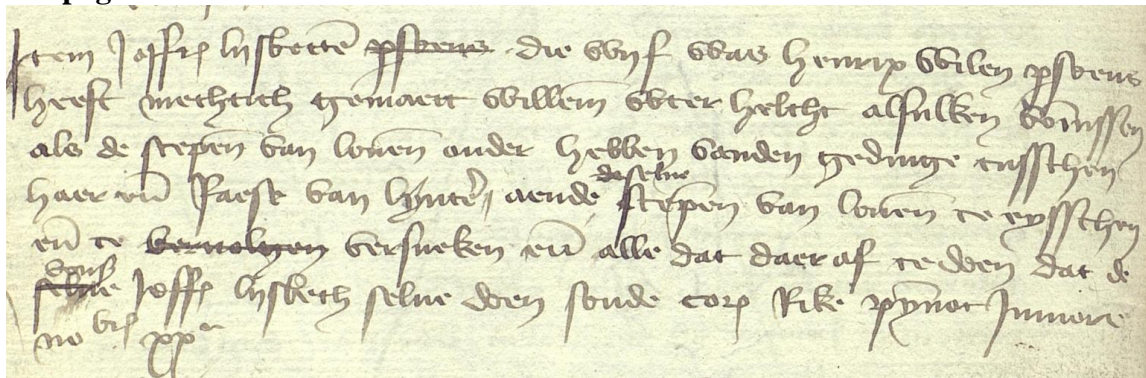 Item Joffr lijsbette die wijf was henrix wilen
heeft mechtich gemaect willem vter helcht alsulken vonissen
als de scepen van louen onder hebben vanden gedinge tusschen
haer en Faese van lynter, aende deselue scepen van louen te eysschen
en te versueken en alle dat daer af te doen dat de
Joffr lijsbeth selue doen soude cor Rike pynnoc Juniore
no xx